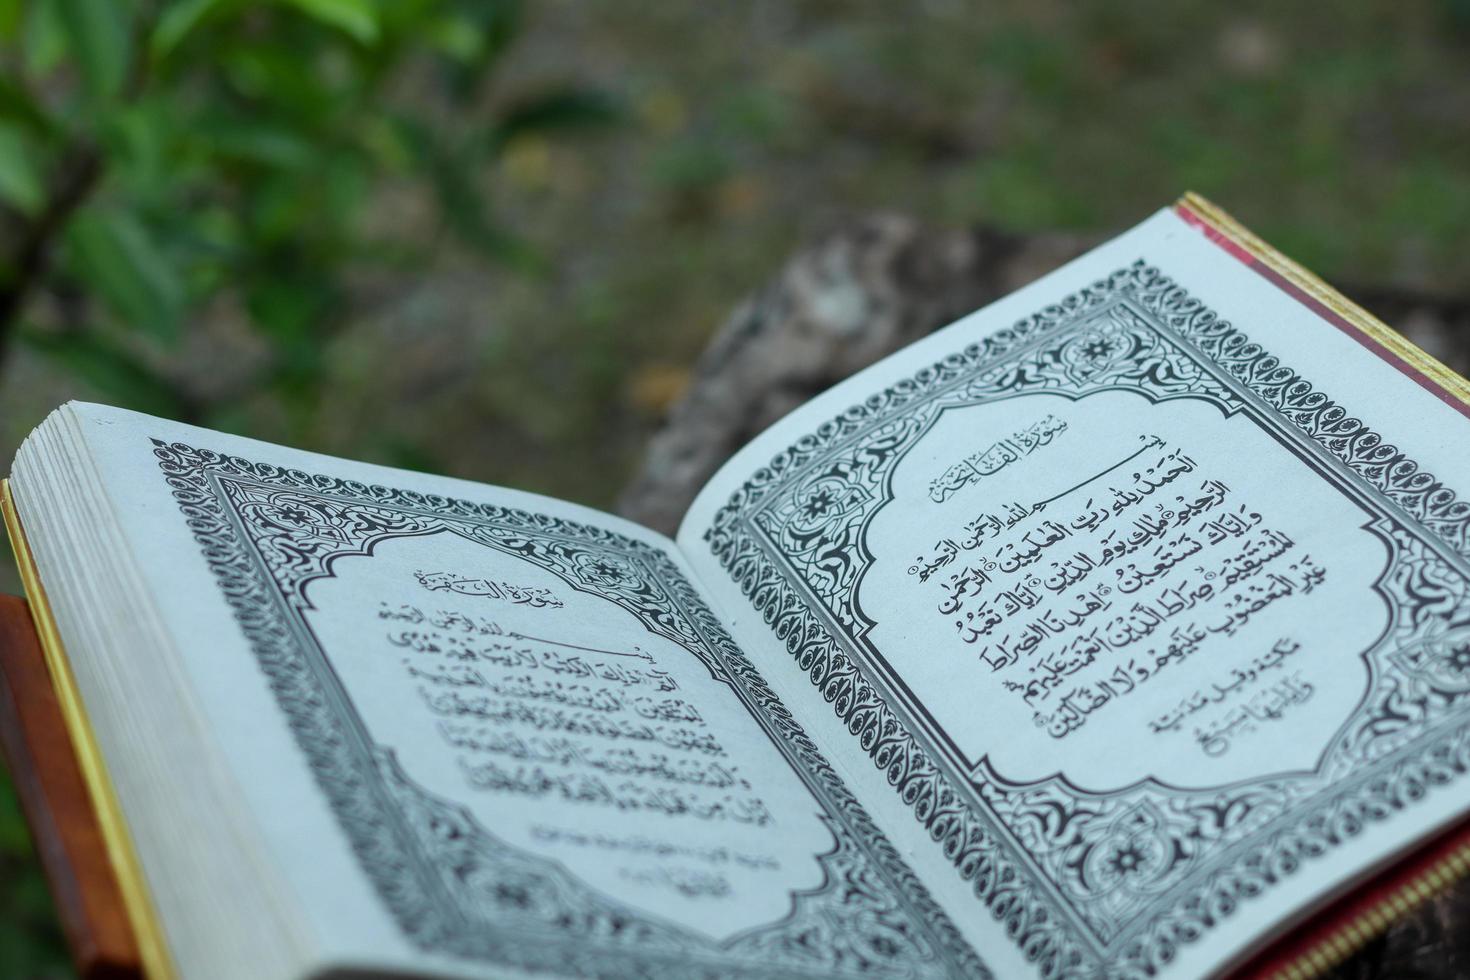 سورة الفاتحة
بِسْمِ اللهِ الرَّحْمٰنِ الرَّحِيْمِ
اَلْحَمْدُ لِلّٰهِ رَبِّ الْعٰلَمِيْنَ ۝ الرَّحْمٰنِ
الرَّحِيْمِ ۝ مٰلِكِ يَوْمِ الدِّيْنِ ۝ اِيَّاكَ نَعْبُدُ
وَاِيَّاكَ نَسْتَعِيْنُ ۝ اِهْدِنَا الصِّرَاطَ
الْمُسْتَقِيْمَ ۝ صِرَاطَ الَّذِيْنَ اَنْعَمْتَ عَلَيْهِمْ
غَيْرِ الْمَغْضُوْبِ عَلَيْهِمْ وَلَا الضَّالِّيْنَ ۝
مكية وقيل مدنية
وايتها سبع
سورة البقرة
بِسْمِ اللهِ الرَّحْمٰنِ الرَّحِيْمِ
الٓمّٓ ذٰلِكَ الْكِتٰبُ لَا رَيْبَ فِيْهِ هُدًى
لِّلْمُتَّقِيْنَ الَّذِيْنَ يُؤْمِنُوْنَ بِالْغَيْبِ
وَيُقِيْمُوْنَ الصَّلٰوةَ وَمِمَّا رَزَقْنٰهُمْ يُنْفِقُوْنَ